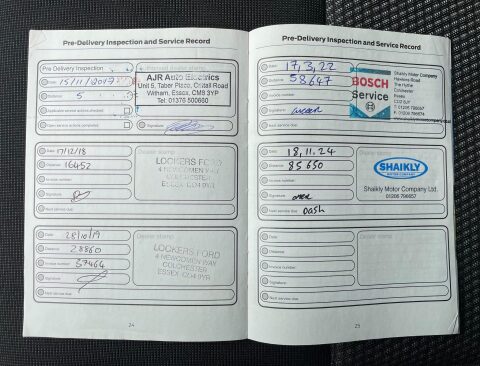 Pre-Delivery Inspection and Service Record
Pre Delivery Inspection
Date 15/11/2017
Distance 5
AJR Auto Electrics
Unit 5, Tabor Place, Crittall Road
Witham, Essex, CM8 3YP
Tel: 01376 500660
Signature
Date 17/12/18
Distance 16452
Invoice number
Signature
Next service due
Dealer stamp
LOCKERS FORD
4 NEWCOMEN WAY
COLCHESTER
ESSEX CO4 9YR
Date 28/10/19
Distance 28860
Invoice number 37464
Signature
Next service due
Dealer stamp
LOCKERS FORD
4 NEWCOMEN WAY
COLCHESTER
ESSEX CO4 9YR
24
Pre-Delivery Inspection and Service Record
Date 17,3,22
Distance 58647
Invoice number
Signature
Next service due
BOSCH
Service
Shaikly Motor Company
Haven Road
The Hythe
Colchester
Essex
Date 18,11,24
Distance 85650
Invoice number
Signature
Next service due Dash
SHAIKLY
MOTOR COMPANY
Shaikly Motor Company Ltd.
01206 796657
Date
Distance
Invoice number
Signature
Next service due
Dealer stamp
25